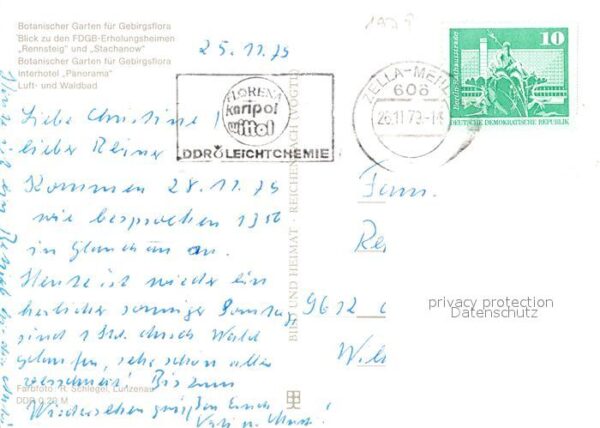 Botanischer Garten für Gebirgsflora
Blick zu den FDGB-Erholungsheimen
„Rennsteig" und „Stachanow"
Botanischer Garten für Gebirgsflora
Interhotel „Panorama"
Luft- und Waldbad
25.11.79
FLORENA
karipol
wittol
DDR LEICHTCHEMIE
ZELLA-MEHL
606
26.11.79
Berlin-Rathausstraße
10
DEUTSCHE DEMOKRATISCHE REPUBLIK
Liebe Christine!
lieber Reiner
Kommen 28.11.79
wie besprochen 1356
in Glauchau an.
Heute ist wieder ein
herlicher sonniger Sonntag,
sind 1 Std. durch Wald
gelaufen, sehr schön alles
verschneit! Bis zum
Wiedersehen grüßen Euch
Vati u. Mutti!
Fam.
Re
9612
BILD UND HEIMAT · REICHENBACH (VOGTL)
Farbfoto: R. Schlegel, Lunzenau
DDR 0,20 M
privacy protection
Datenschutz